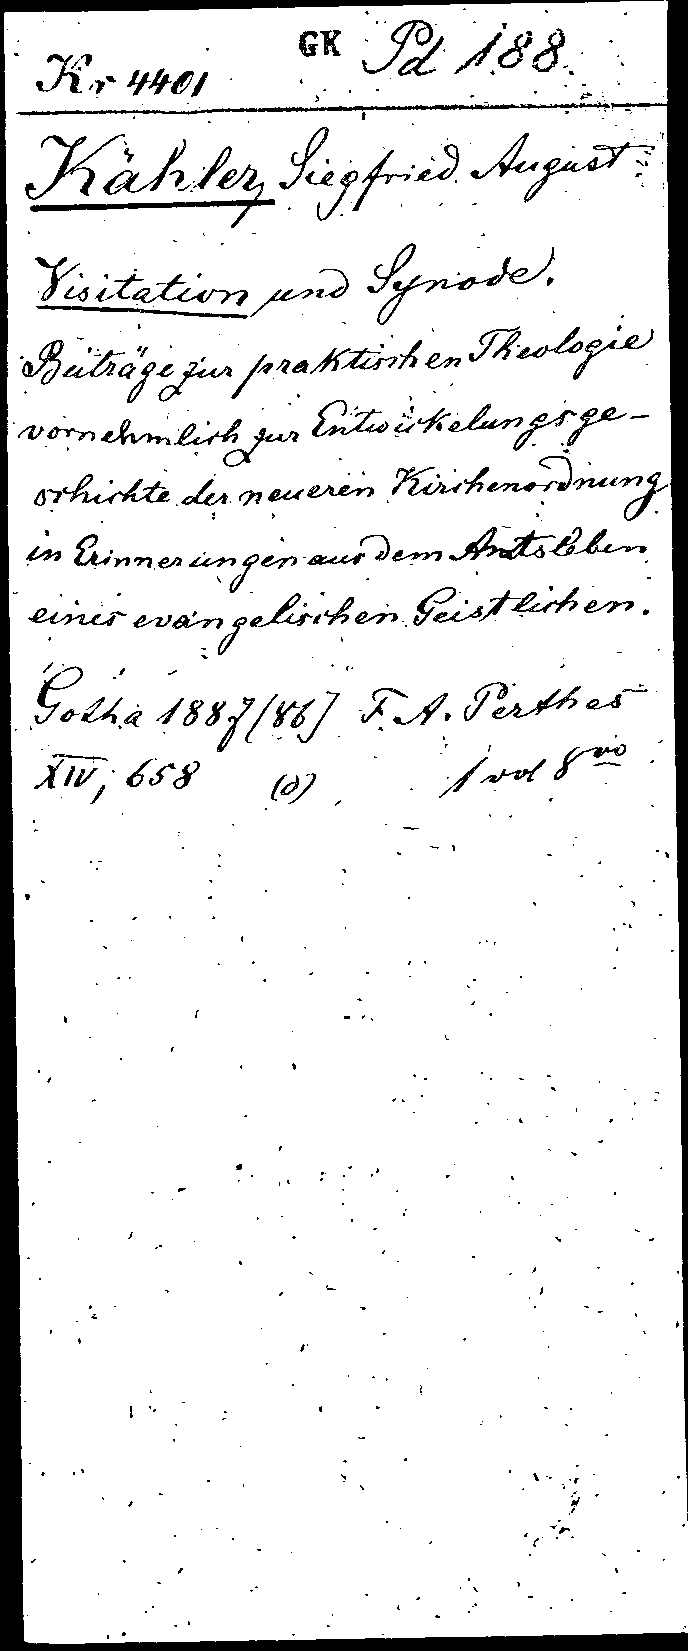 GK Pd 188.
Kr 4401
Kähler, Siegfried August
Visitation und Synode.
Beiträge zur praktischen Theologie
vornehmlich zur Entwickelungsge-
schichte der neueren Kirchenordnung
in Erinnerungen aus dem Amtsleben
eines evangelischen Geistlichen.
Gotha 1887 [86] F. A. Perthes
XIV, 658 (d) 1 vol 8vo